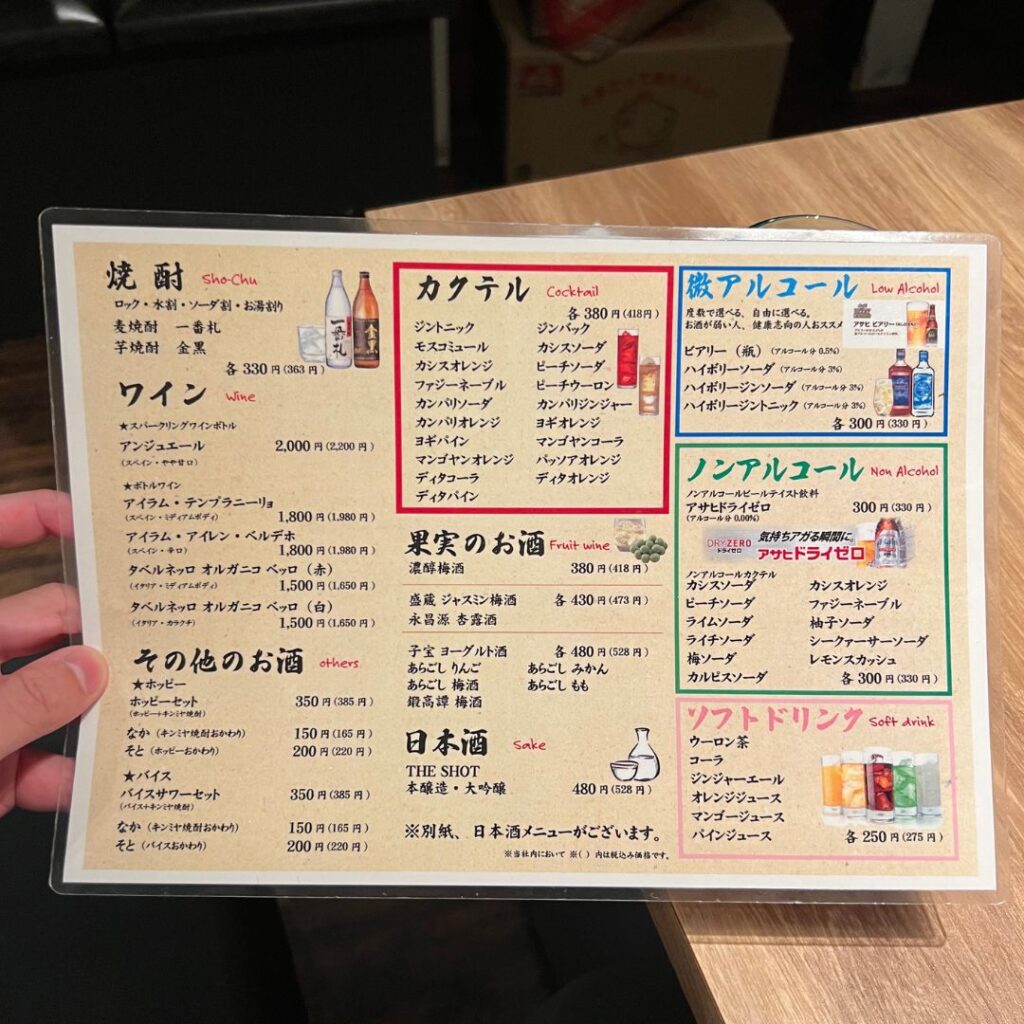 焼酎 Sho-Chu
ロック・水割・ソーダ割・お湯割り
麦焼酎 一番札
芋焼酎 金黒
各 330 円 (363 円)
一番札
金黒
ワイン Wine
★スパークリングワインボトル
アンジュエール 2,000 円 (2,200 円)
(スペイン・やや甘口)
★ボトルワイン
アイラム・テンプラニーリョ
(スペイン・ミディアムボディ) 1,800 円 (1,980 円)
アイラム・アイレン・ベルデホ
(スペイン・辛口) 1,800 円 (1,980 円)
タベルネッロ オルガニコ ベッロ (赤)
(イタリア・ミディアムボディ) 1,500 円 (1,650 円)
タベルネッロ オルガニコ ベッロ (白)
(イタリア・カラクチ) 1,500 円 (1,650 円)
その他のお酒 others
★ホッピー
ホッピーセット 350 円 (385 円)
(ホッピー+キンミヤ焼酎)
なか (キンミヤ焼酎おかわり) 150 円 (165 円)
そと (ホッピーおかわり) 200 円 (220 円)
★バイス
バイスサワーセット 350 円 (385 円)
(バイス+キンミヤ焼酎)
なか (キンミヤ焼酎おかわり) 150 円 (165 円)
そと (バイスおかわり) 200 円 (220 円)
カクテル Cocktail
各 380 円 (418 円)
ジントニック ジンバック
モスコミュール カシスソーダ
カシスオレンジ ピーチソーダ
ファジーネーブル ピーチウーロン
カンパリソーダ カンパリジンジャー
カンパリオレンジ ヨギオレンジ
ヨギパイン マンゴヤンコーラ
マンゴヤンオレンジ パッソアオレンジ
ディタコーラ ディタオレンジ
ディタパイン
果実のお酒 Fruit wine
濃醇梅酒 380 円 (418 円)
盛蔵 ジャスミン梅酒 各 430 円 (473 円)
永昌源 杏露酒
子宝 ヨーグルト酒 各 480 円 (528 円)
あらごし りんご あらごし みかん
あらごし 梅酒 あらごし もも
鍛高譚 梅酒
日本酒 Sake
THE SHOT
本醸造・大吟醸 480 円 (528 円)
※別紙、日本酒メニューがございます。
※当社内において ※( ) 内は税込み価格です。
微アルコール Low Alcohol
度数で選べる、自由に選べる。
お酒が弱い人、健康志向の人おススメ
アサヒ ビアリー
ビアリー (瓶) (アルコール分 0.5%)
ハイボリーソーダ (アルコール分 3%)
ハイボリージンソーダ (アルコール分 3%)
ハイボリージントニック (アルコール分 3%)
各 300 円 (330 円)
ノンアルコール Non Alcohol
ノンアルコールビールテイスト飲料
アサヒドライゼロ 300 円 (330 円)
(アルコール分 0.00%)
DRY ZERO
ドライゼロ
気持ちアガる瞬間に
アサヒドライゼロ
ノンアルコールカクテル
カシスソーダ カシスオレンジ
ピーチソーダ ファジーネーブル
ライムソーダ 柚子ソーダ
ライチソーダ シークァーサーソーダ
梅ソーダ レモンスカッシュ
カルピスソーダ 各 300 円 (330 円)
ソフトドリンク Soft drink
ウーロン茶
コーラ
ジンジャーエール
オレンジジュース
マンゴージュース
パインジュース 各 250 円 (275 円)